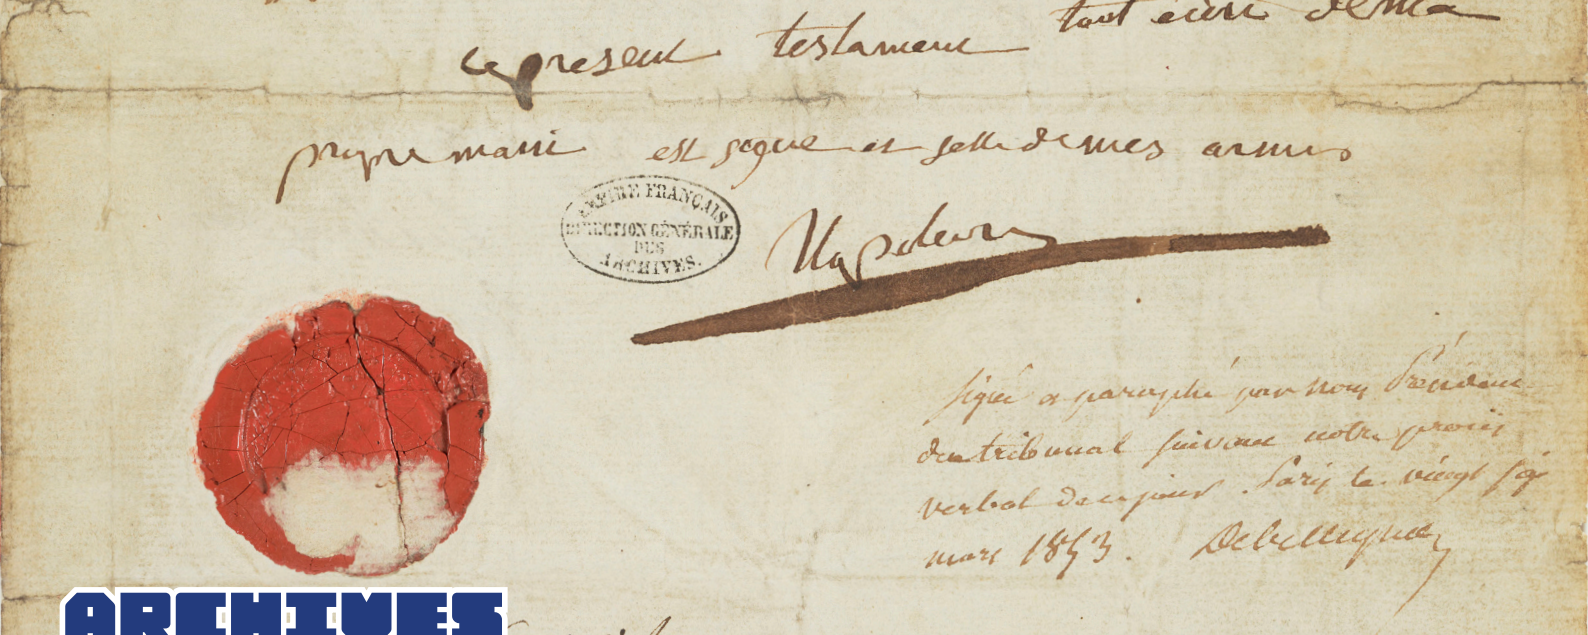 tout écrit de ma
ce present testament
propre main est signé et scellé de mes armes
EMPIRE FRANÇAIS
DIRECTION GÉNÉRALE
DES
ARCHIVES.
Napoleon
signé et paraphé par nous Président
du tribunal suivant notre procès
verbal de ce jour. Paris le vingt six
mars 1853. Debelleyme
ARCHIVES